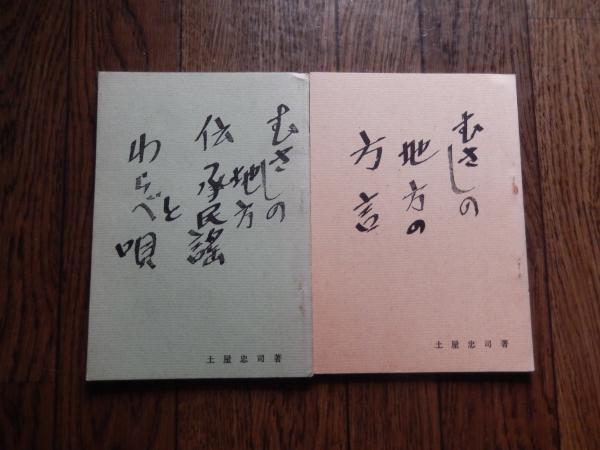 むさしの
地方
伝承民謡
と
わらべ唄
土屋忠司著
むさしの
地方の
方言
土屋忠司著